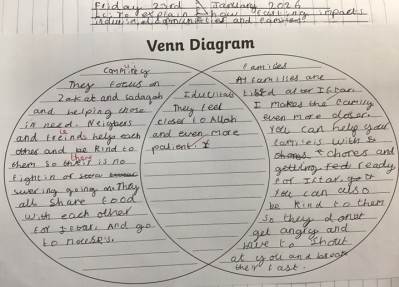 Friday 23rd January 2026
L.I: To explain how fasting impacts
individuals, communities and families
Venn Diagram
Community
They focus on
Zakat and Sadaqah
and helping those
in need. Neighbers
and freinds help each
other and be kind to
them so there is no
fighting or
swering going on. They
all share food
with each other
for Iftar. And go
to houses.
They feel
closer to Allah
and even more
patient.
Families
At families are
after Iftar.
I makes the family
even more closer.
You can help your
families with
chores and
getting feed ready
for Iftar.
You can also
be kind to them
so they donot
get angry and
have to shout
at you and break
their fast.